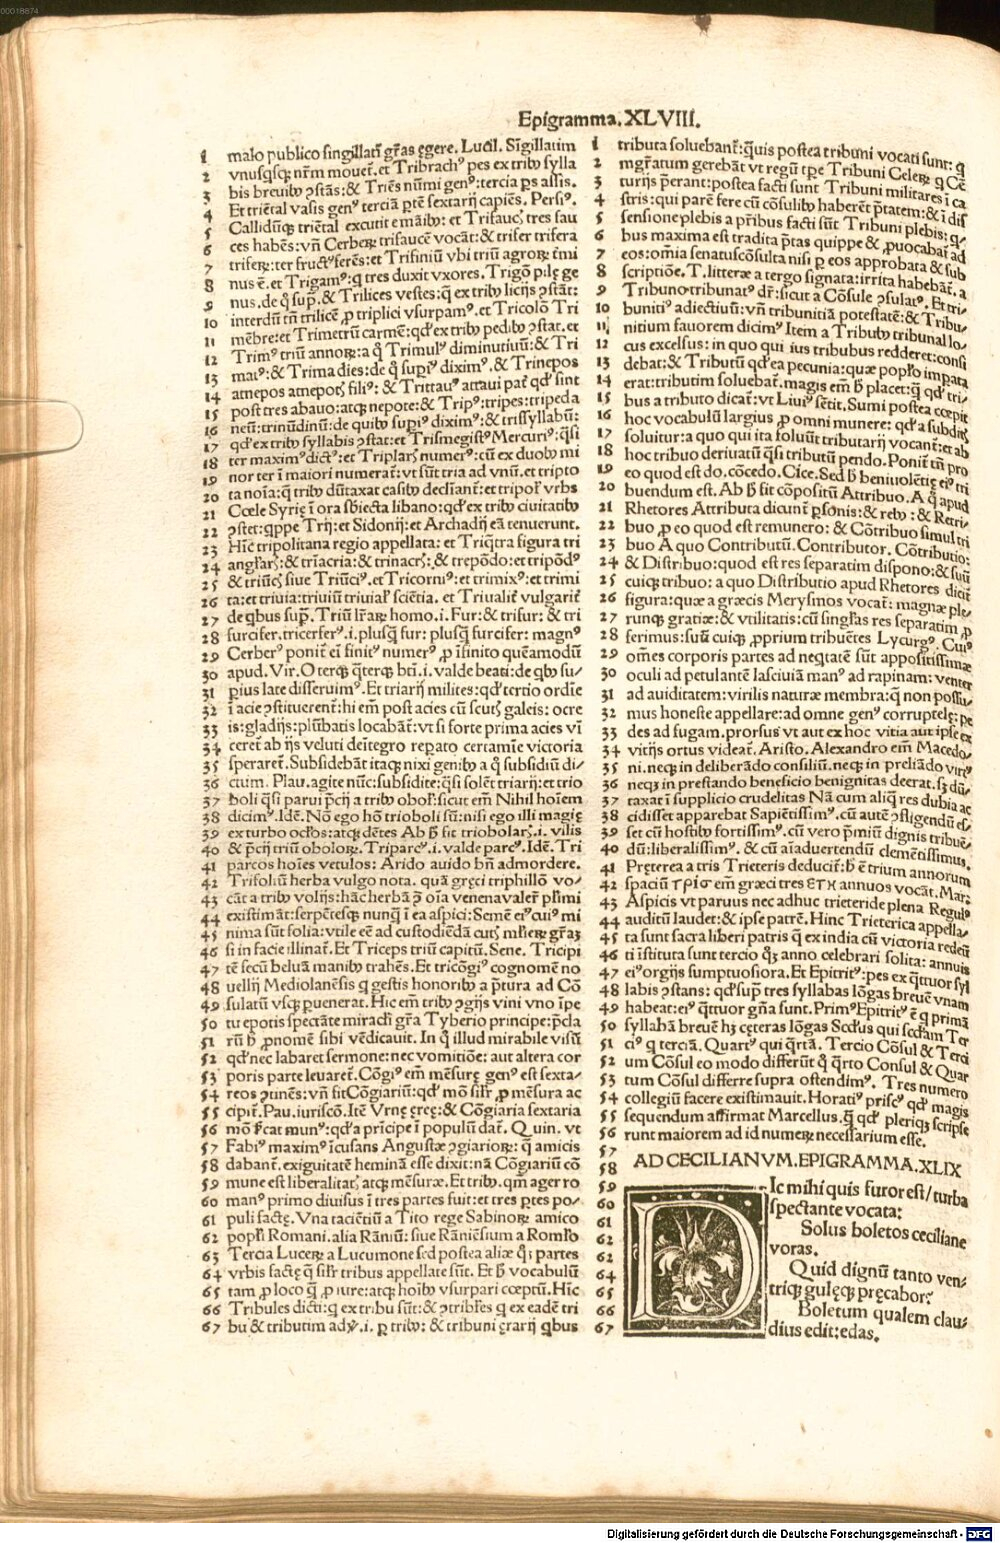 00018874
Epigramma.XLVIII.
1 malo publico singillatĩ gr̃as ęgere. Lucil. Sĩgillatim
2 vnusq̃sq; nr̃m mouet̃.et Tribrachꝰ pes ex tribꝰ sylla
3 bis breuibꝰ ꝯstãs:& Triẽs nũmi genꝰ:tercia ps assis.
4 Et triẽtal vasis genꝰ terciã ptẽ sextarij capiẽs. Persiꝰ.
5 Callidũq; triẽtal excutit e mãibꝰ: et Trifaux tres fau
6 ces habẽs:vñ Cerberꝝ trifaucẽ vocãt:& trifer trifera
7 triferꝝ:ter fructꝰ ferẽs:et Trifiniũ vbi triũ agroꝝ tm̃i
8 nus ẽ.et Trigamꝰ:q tres duxit vxores. Trigõ pilę ge
9 nus.de q̃ sup̃.& Trilices vestes:q̃ ex tribꝰ licijs ꝯstãt:
10 interdũ tñ trilicẽ ꝓ triplici vsurpamꝰ.et Tricolõ Tri
11 mẽbre:et Trimetrũ carmẽ:qd̓ ex tribꝰ pedibꝰ ꝯstat.et
12 Trimꝰ triũ annoꝝ:a q̃ Trimulꝰ diminutiuũ:& Tri
13 matꝰ:& Trima dies:de q̃ supiꝰ diximꝰ.& Trinepos
14 atnepos atnepotis filiꝰ: & Trittauꝰ attaui pat̃ qd̓ sint
15 post tres abauo:atq; nepote:& Tripꝰ:tripes:tripeda
16 neũ:trinũdinũ:de quibꝰ supiꝰ diximꝰ:& trissyllabũ:
17 qd̓ ex tribꝰ syllabis ꝯstat:et Trismegistꝰ Mercuriꝰ:q̃si
18 ter maximꝰ dictꝰ:et Triplaris numerꝰ:cũ ex duobꝰ mi
19 nor ter ĩ maiori numerat̃:vt sũt tria ad vnũ.et tripto
20 ta noĩa:q̃ tribꝰ dũtaxat casibꝰ declĩant̃:et tripor̃ vrbs
21 Cœle Syrię ĩ ora sbiecta libano:qd̓ ex tribꝰ ciuitatibꝰ
22 ꝯstet:qppe Trij:et Sidonij:et Archadij eã tenuerunt.
23 Hĩc tripolitana regio appellata:et Triq̃tra figura tri
24 angl̃aris:& trĩacria:& trinacris:& trepõdo:et tripõdꝰ
25 & triũcis siue Triũciꝰ.et Tricorniꝰ:et trimixꝰ:et trimi
26 ta:et triuia:triuiũ triuial̃ sciẽtia. et Triualit̃ vulgarit̃
27 de qbus sup̃. Triũ lr̃aꝝ homo.i. Fur:& trifur: & tri
28 furcifer.tricerferꝰ.i.plusq̃ fur: plusq̃ furcifer: magnꝰ
29 Cerberꝰ ponit̃ eĩ finitꝰ numerꝰ ꝓ ĩfinito quẽamodũ
30 apud. Vir. O terq; q̃terq; bt̃i.i. valde beati:de qbꝰ su⸗
31 ꝑius late disseruimꝰ. Et triarij milites:qd̓ tertio ordĩe
32 ĩ acie ꝯstituerent̃:hi em̃ post acies cũ scutis galeis: ocre
33 is:gladijs:plũbatis locabãt̃:vt si forte prima acies vĩ
34 ceret̃ ab ijs veluti deĩtegro reꝑato certamĩe victoria
35 speraret̃. Subsidebãt itaq; nixi genibꝰ a q̃ subsidiũ di⸗
36 ctum. Plau.agite nũc:subsidite:q̃si solẽt triarij:et trio
37 boli q̃si parui p̃cij a tribꝰ obol̃:sicut em̃ Nihil hoĩem
38 dicimꝰ. Idẽ. Nõ ego hõ trioboli sũ:nisi ego illi magię
39 ex turbo ocl̃os:atq; dẽtes Ab h̃ fit triobolaris.i. vilis
40 & p̃cij triũ oboloꝝ. Triparcꝰ.i. valde parcꝰ. Idẽ. Tri
41 parcos hoĩes vetulos: Arido auido bñ admordere.
42 Trifoliũ herba vulgo nota. quã gręci triphillõ vo⸗
43 cãt a tribꝰ volijs:hãc herbã ꝯ oĩa venena valer̃ pl̃imi
44 existimãt:serpẽtesq; nunq̃ ĩ ea aspici: Semẽ eiꝰ cuiꝰ mi
45 nima sũt folia:vtile eẽ ad custodiẽdã cutis ml̃ierꝝ gr̃aꝫ
46 si in facie illinat̃. Et Triceps triũ capitũ. Sene. Tricipi
47 tẽ secũ beluã manibꝰ trahẽs. Et tricõgiꝰ cognomẽ no
48 uellij Mediolanẽsis q̃ gestis honoribꝰ a p̃tura ad Cõ
49 sulatũ vsq; ꝑuenerat. Hic em̃ tribꝰ ꝯgijs vini vno ĩpe
50 tu epotis spectãte miracl̃i gr̃a Tyberio principe:p̃cla
51 rũ h̃ ꝓnomẽ sibi vẽdicauit. In q̃ illud mirabile visũ
52 qd̓ nec labaret sermone:nec vomitiõe: aut altera cor
53 poris parte leuaret̃. Cõgiꝰ em̃ mẽsurę genꝰ est sexta⸗
54 reos ꝯtinẽs:vñ fit Cõgiariũ:qd̓ mõ sil̃r ꝓ mẽsura ac
55 cipit̃. Pau.iuriscõ. Itẽ Vrnę ęreę:& Cõgiaria sextaria
56 mõ ꝓcat munꝰ:qd̓ a prĩcipe ĩ populũ dat̃. Quin. vt
57 Fabiꝰ maximꝰ ĩcusans Angustæ ꝯgiarioꝝ: q̃ amicis
58 dabant̃.exiguitatẽ heminã esse dixit:nã Cõgiariũ cõ
59 mune est liberalitatis atq; mẽsuræ. Et tribꝰ. qm̃ ager ro
60 manꝰ primo diuisus ĩ tres partes fuit:et tres ꝑtes po⸗
61 puli factę. Vna taciẽtiũ a Tito rege Sabinoꝝ amico
62 popl̃i Romani.alia Rãniũ: siue Rãniẽsium a Romlõ
63 Tercia Lucerꝝ a Lucumone sed postea aliæ q̃i partes
64 vrbis factę q̃ sil̃r tribus appellate sũt. Et h̃ vocabulũ
65 tam ꝓ loco q̃ ꝓ iure:atq; hoĩbꝰ vsurpari cœptũ. Hic
66 Tribules dicti:q̃ ex tribu sũt:& ꝯtribl̃es q̃ ex eadẽ tri
67 bu & tributim adṽ.i. ꝑ tribꝰ: & tribuni ęrarij qbus
1 tributa soluebant̃:q̃uis postea tribuni vocati sunt: q̃
2 mgr̃atum gerebãt vt regũ tꝑe Tribuni Celerꝝ q Cẽ
3 turijs p̃erant:postea facti sunt Tribuni militares ĩ ca
4 stris:qui parẽ fere cũ cõsulibꝰ haberẽt p̃tatem:& ĩ dis
5 sensione plebis a pr̃ibus facti sũt Tribuni plebis: q⸗
6 bus maxima est tradita p̃tas quippe & ꝓuocabat̃ ad
7 eos:om̃ia senatuscõsulta nisi ꝑ eos approbata & sub
8 scriptiõe. T. litteræ a tergo signata: irrita habebãt̃. a
9 Tribuno tribunatꝰ dr̃:sicut a Cõsule ꝯsulatꝰ. Et tri⸗
10 bunitiꝰ adiectiuũ: vñ tribunitiã potestatẽ:& Tribu⸗
11 nitium fauorem dicimꝰ Item a Tributo tribunal lo⸗
12 cus excelsus: in quo qui ius tribubus redderet:consi
13 debat:& Tributũ qd̓ ea pecunia:quæ popl̃o imꝑata
14 erat:tributim soluebat̃.magis em̃ h̃ placet:q̃ qd̓ tri⸗
15 bus a tributo dicãt̃:vt Liuiꝰ sẽtit. Sumi postea cœpit
16 hoc vocabulũ largius ꝓ omni munere: qd̓ a subditis
17 soluitur:a quo qui ita soluũt tributarij vocant̃:et ab
18 hoc tribuo deriuatũ q̃si tributũ pendo. Ponit̃ tñ pro
19 eo quod est do.cõcedo. Cice. Sed h̃ beniuolẽtię eiꝰ tri
20 buendum est. Ab h̃ fit cõpositũ Attribuo. A q̃ apud
21 Rhetores Attributa dicunt̃ ꝑsonis:& rebꝰ: & Retri⸗
22 buo ꝓ eo quod est remunero: & Cõtribuo simul tri
23 buo A quo Contributũ. Contributor. Cõtributio:
24 & Distribuo:quod est res separatim dispono:& suũ
25 cuiq; tribuo: a quo Distributio apud Rhetores dicit̃
26 figura:quæ a græcis Merysmos vocat̃: magnæ ple⸗
27 runq; gratiæ:& vtilitatis:cũ singl̃as res separatim ꝓ
28 ferimus:suũ cuiq; ꝓprium tribuẽtes Lycurgꝰ. Cuiꝰ
29 om̃es corporis partes ad neqtatẽ sũt appositissimæ
30 oculi ad petulantẽ lasciuiã manꝰ ad rapinam: venter
31 ad auiditatem:virilis naturæ membra:q̃ non possu⸗
32 mus honeste appellare:ad omne genꝰ corruptelę: pe
33 des ad fugam.prorsus vt aut ex hoc vitia aut ipse ex
34 vitijs ortus videat̃. Aristo. Alexandro em̃ Macedo⸗
35 ni.neq; in deliberãdo consiliũ.neq; in preliãdo virtꝰ
36 neq; in prestando beneficio benignitas deerat.sꝫ dũ⸗
37 taxat ĩ supplicio crudelitas Nã cum aliq̃ res dubia ac
38 cidisset apparebat Sapiẽtissimꝰ.cũ autẽ ꝯfligendũ es⸗
39 set cũ hostibꝰ fortissimꝰ.cũ vero p̃miũ dignis tribuẽ⸗
40 dũ:liberalissimꝰ. & cũ aĩaduertendũ clemẽtissimus.
41 Pręterea a tris Trieteris deducit̃: h̃ ẽ trium annorum
42 spaciũ τρίσ em̃ græci tres ετη annuos vocãt. Mar⸗
43 Aspicis vt paruus nec adhuc trieteride plena Regulꝰ
44 auditũ laudet:& ipse patrẽ. Hinc Trieterica appella⸗
45 ta sunt sacra liberi patris q̃ ex india cũ victoria redeũ
46 ti ĩstituta sunt tercio qꝫ anno celebrari solita: annuis
47 eiꝰ orgijs sumptuosiora. Et Epitritꝰ:pes ex q̃ttuor syl
48 labis ꝯstans: qd̓ sup̃ tres syllabas lõgas breuẽ vnam
49 habeat:eiꝰ q̃ttuor gña sunt. Primꝰ Epitritꝰ ẽ q primã
50 syllabã breuẽ hꝫ cęteras lõgas Scd̃us qui scd̃am Ter
51 ciꝰ q terciã. Quartꝰ qui q̃rtã. Tercio Cõsul & Terci
52 um Cõsul eo modo differũt q̃ q̃rto Consul & Quar
53 tum Cõsul differre supra ostendimꝰ. Tres numero
54 collegiũ facere existimauit. Horatiꝰ priscꝰ qd̓ magis
55 sequendum affirmat Marcellus. q̃ qd̓ pleriq; scripse
56 runt maiorem ad id numerꝝ necessarium esse.
57
58 AD CECILIANVM.EPIGRAMMA.XLIX
59 DIc mihi quis furor est/turba
60 spectante vocata:
61 Solus boletos ceciliane
62 voras.
62 Quid dignũ tanto ven⸗
64
65 triq; gulęq; pręcabor:
66 Boletum qualem clau⸗
67 dius edit:edas.
Digitalisierung gefördert durch die Deutsche Forschungsgemeinschaft - DFG